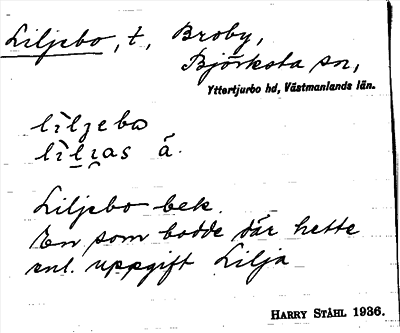 Liljebo, t, Broby,
Björksta sn,
Yttertjurbo hd, Västmanlands län.
lìljebo
lìljas å.
Liljebo bek.
En som bodde där hette
enl. uppgift Lilja
HARRY STÅHL 1936.